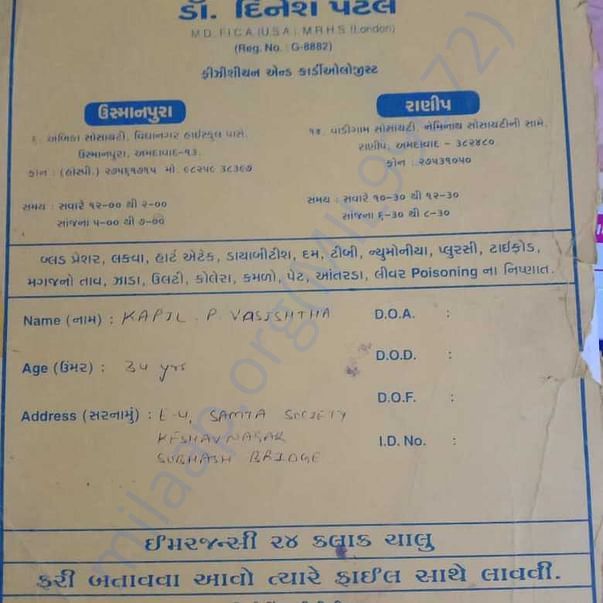 ડૉ. દિનેશ પટેલ
M.D. F.I.C.A. (U.S.A.) M.R.H.S. (London)
(Reg. No. : G-8882)
ફીઝીશીયન એન્ડ કાર્ડીઓલોજીસ્ટ
ઉસ્માનપુરા
૬, અંબિકા સોસાયટી, વિદ્યાનગર હાઈસ્કુલ પાસે,
ઉસ્માનપુરા, અમદાવાદ-૧૩.
ફોન : (હોસ્પી.)
સમય : સવારે ૧૨-૦૦ થી ૨-૦૦
સાંજના ૫-૦૦ થી ૭-૦૦
રાણીપ
૧૪, વાડીગામ સોસાયટી, નેમિનાથ સોસાયટીની સામે,
રાણીપ, અમદાવાદ - ૩૮૨૪૮૦.
ફોન : ૨૭૫૩૧૦૫૦
સમય : સવારે ૧૦-૩૦ થી ૧૨-૩૦
સાંજના ૬-૩૦ થી ૮-૩૦
બ્લડ પ્રેશર, લકવા, હાર્ટ એટેક, ડાયાબીટીશ, દમ, ટીબી, ન્યુમોનીયા, પ્લુરસી, ટાઈફોડ,
મગજનો તાવ, ઝાડા, ઉલટી, કોલેરા, કમળો, પેટ, આંતરડા, લીવર Poisoning ના નિષ્ણાત.
Name (નામ) : KAPIL . P. VASISHTHA
Age (ઉંમર) : 34 yrs
Address (સરનામું) : E-4, SAMTA SOCIETY
KESHAVNAGAR
SUBHASH BRIDGE
D.O.A. :
D.O.D. :
D.O.F. :
I.D. No. :
ઈમરજન્સી ૨૪ કલાક ચાલુ
ફરી બતાવવા આવો ત્યારે ફાઈલ સાથે લાવવી.